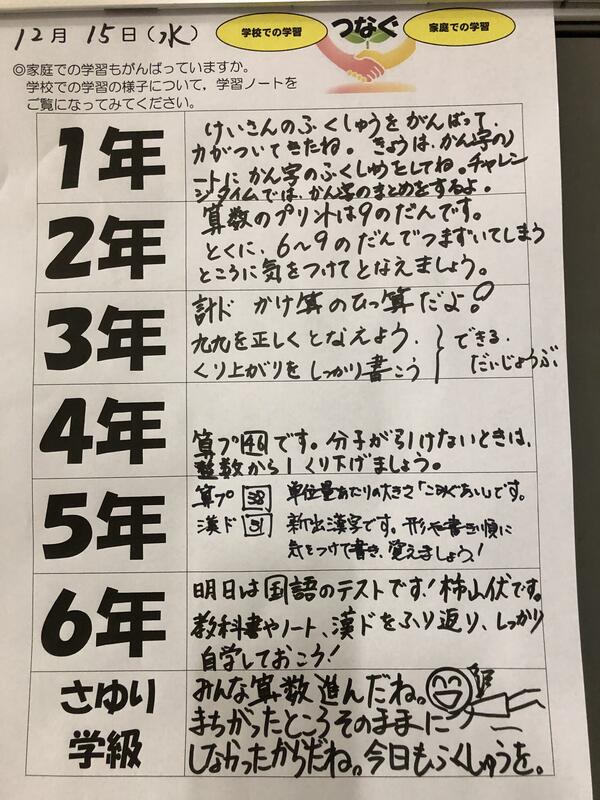 12月 15日(水)
学校での学習 つなぐ 家庭での学習
◎家庭での学習もがんばっていますか。
学校での学習の様子について，学習ノートを
ご覧になってみてください。
1年
けいさんのふくしゅうをがんばって、
力がついてきたね。きょうは、かん字のノ
ートにかん字のふくしゅうをしてね。チャレン
ジタイムでは、かん字のまとめをするよ。
2年
算数のプリントは9のだんです。
とくに、6〜9のだんでつまずいてしまう
ところに気をつけてとなえましょう。
3年
計ド かけ算のひっ算だよ!
九九を正しくとなえよう、
くり上がりをしっかり書こう
できる、
だいじょうぶ
4年
算プ46です。分子が引けないときは、
整数から1くり下げましょう。
5年
算プ 38 単位量あたりの大きさ「こみぐあい」です。
漢ド 31 新出漢字です。形や書き順に
気をつけて書き、覚えましょう!
6年
明日は国語のテストです!柿山伏です。
教科書やノート、漢ドをふり返り、しっかり
自学しておこう!
さゆり
学級
みんな算数進んだね。
まちがったところそのままに
しなかったからだね。今日もふくしゅうを。